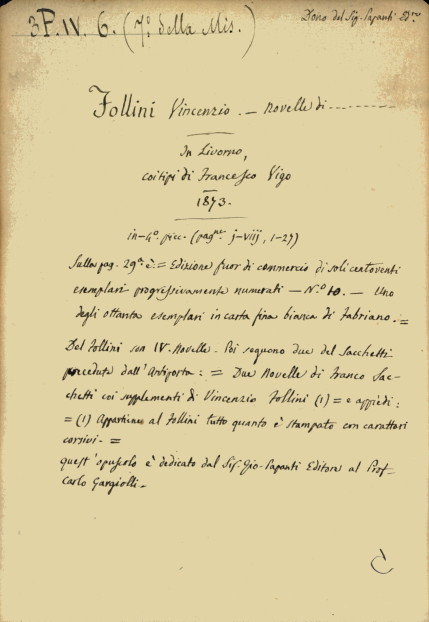 3P.IV. 6. (7º. della Mis.)
Dono del Sig. Papanti Ed.re
Follini Vincenzio. — Novelle di - - - - - - - -
In Livorno,
coi tipi di Francesco Vigo
1873.
in-4º. picc. (pagne j-viij, 1-27)
Sulla pag. 29ª è: = Edizione fuor di commercio di soli centoventi
esemplari progressivamente numerati — N.º 10. — Uno
degli ottanta esemplari in carta fina bianca di Fabriano. =
Del Follini son IV. Novelle - Poi seguono due del Sacchetti
precedute dall'Antiporta: = Due Novelle di Franco Sac-
chetti coi supplementi di Vincenzio Follini (1) = e appiedi:
= (1) Appartiene al Follini tutto quanto è stampato con caratteri
corsivi. =
quest'opuscolo è dedicato dal Sig. Gio. Papanti Editore al Prof.
Carlo Gargiolli.